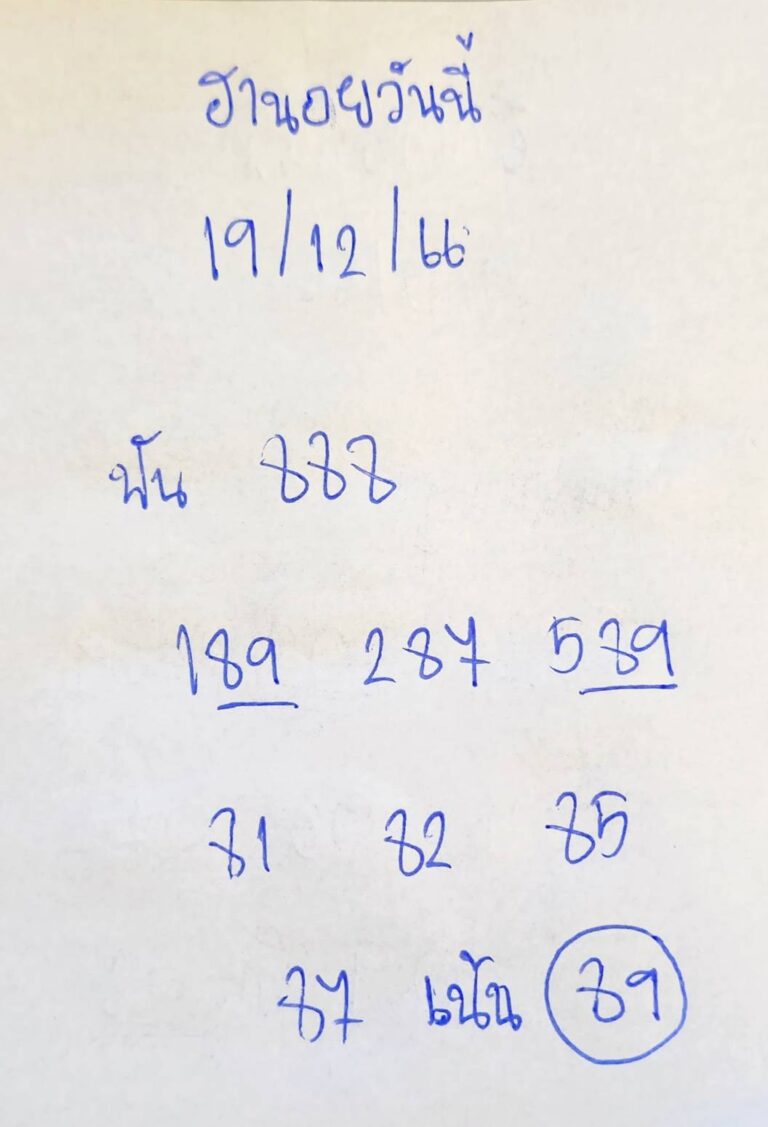 ฮานอยวันนี้
19/12/66
ฟัน 888
189 287 589
81 82 85
87 เน้น 89